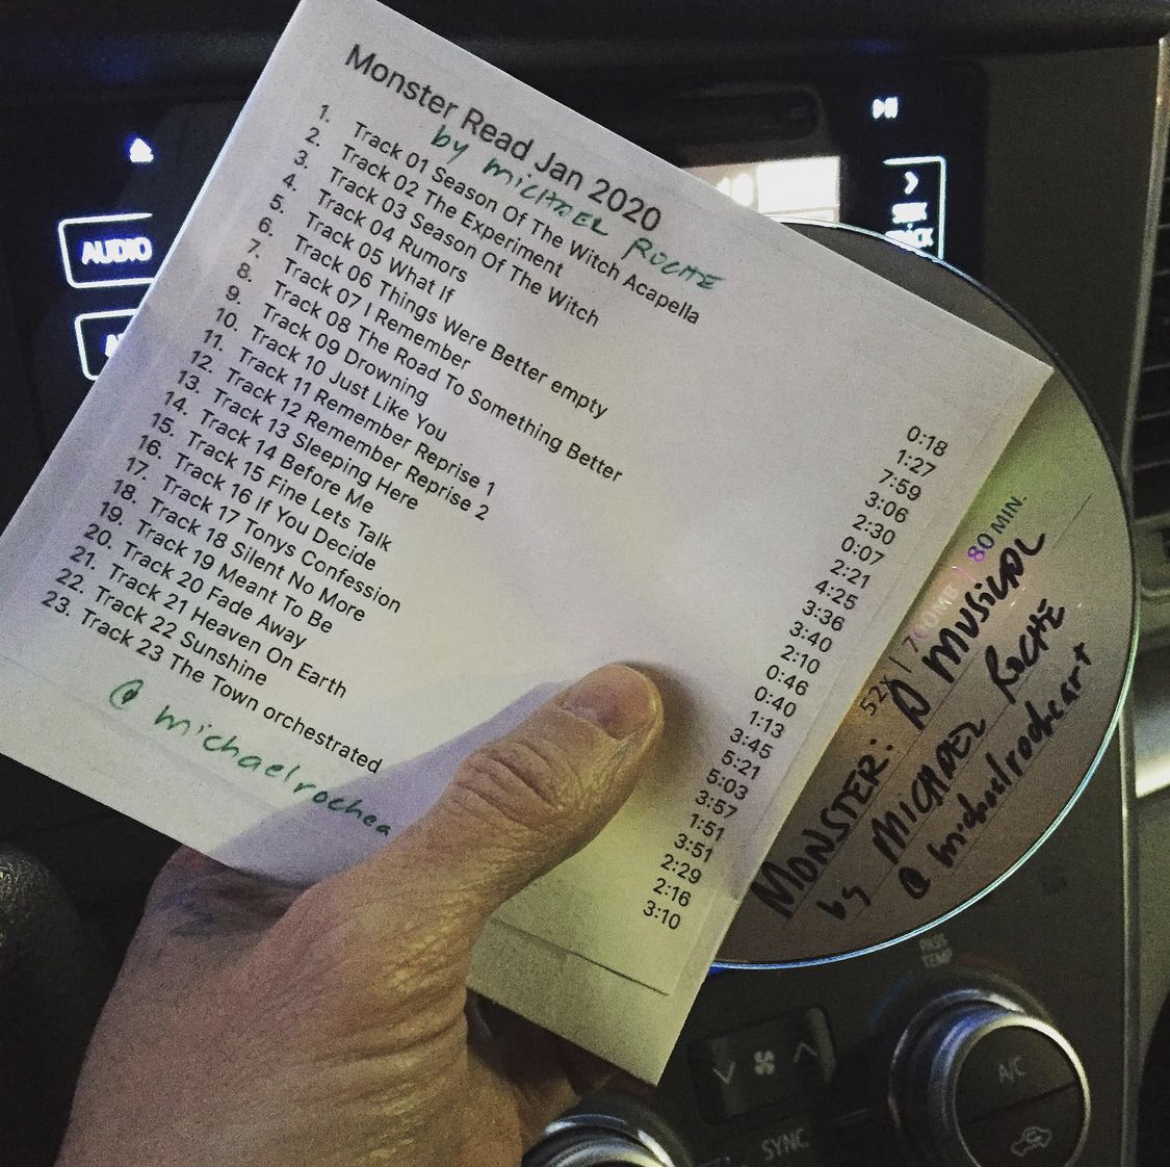 Monster Read Jan 2020
by MICHAEL ROCHE
1. Track 01 Season Of The Witch Acapella 0:18
2. Track 02 The Experiment 1:27
3. Track 03 Season Of The Witch 7:59
4. Track 04 Rumors 3:06
5. Track 05 What If 2:30
6. Track 06 Things Were Better empty 0:07
7. Track 07 I Remember 2:21
8. Track 08 The Road To Something Better 4:25
9. Track 09 Drowning 3:36
10. Track 10 Just Like You 3:40
11. Track 11 Remember Reprise 1 2:10
12. Track 12 Remember Reprise 2 0:46
13. Track 13 Sleeping Here 0:40
14. Track 14 Before Me 1:13
15. Track 15 Fine Lets Talk 3:45
16. Track 16 If You Decide 5:21
17. Track 17 Tonys Confession 5:03
18. Track 18 Silent No More 3:57
19. Track 19 Meant To Be 1:51
20. Track 20 Fade Away 3:51
21. Track 21 Heaven On Earth 2:29
22. Track 22 Sunshine 2:16
23. Track 23 The Town orchestrated 3:10
@michaelrochea
52x | 700MB | 80 MIN.
MONSTER: A MUSICAL
by MICHAEL ROCHE
@michaelrocheart
AUDIO
A/C
SYNC